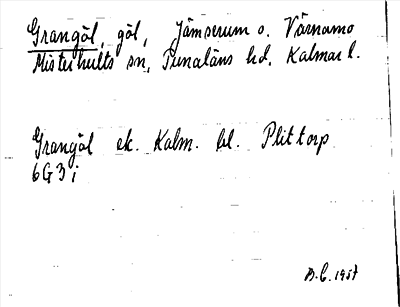 Grangöl, göl, Jämserum o. Värnamo
Misterhults sn, Tunaläns hd, Kalmar l.
Grangöl ek. Kalm. bl. Plittorp
6G3i
B.E. 1957